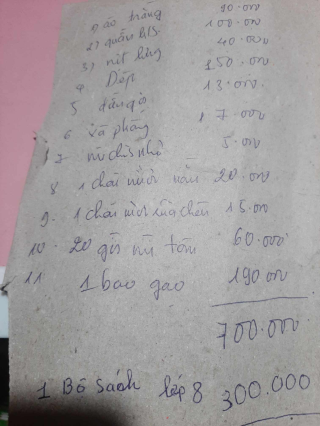 1 áo trắng 90.000
2) quần HS 100.000
3) nịt lưng 40.000
4 Dép 150.000
5 dầu gội 13.000
6 xà phòng 7.000
7 5.000
8 1 chai nước mắm 20.000
9. 1 chai nước rửa chén 15.000
10. 20 gói mì tôm 60.000
11 1 bao gạo 190.000
700.000
1 Bộ Sách lớp 8 300.000